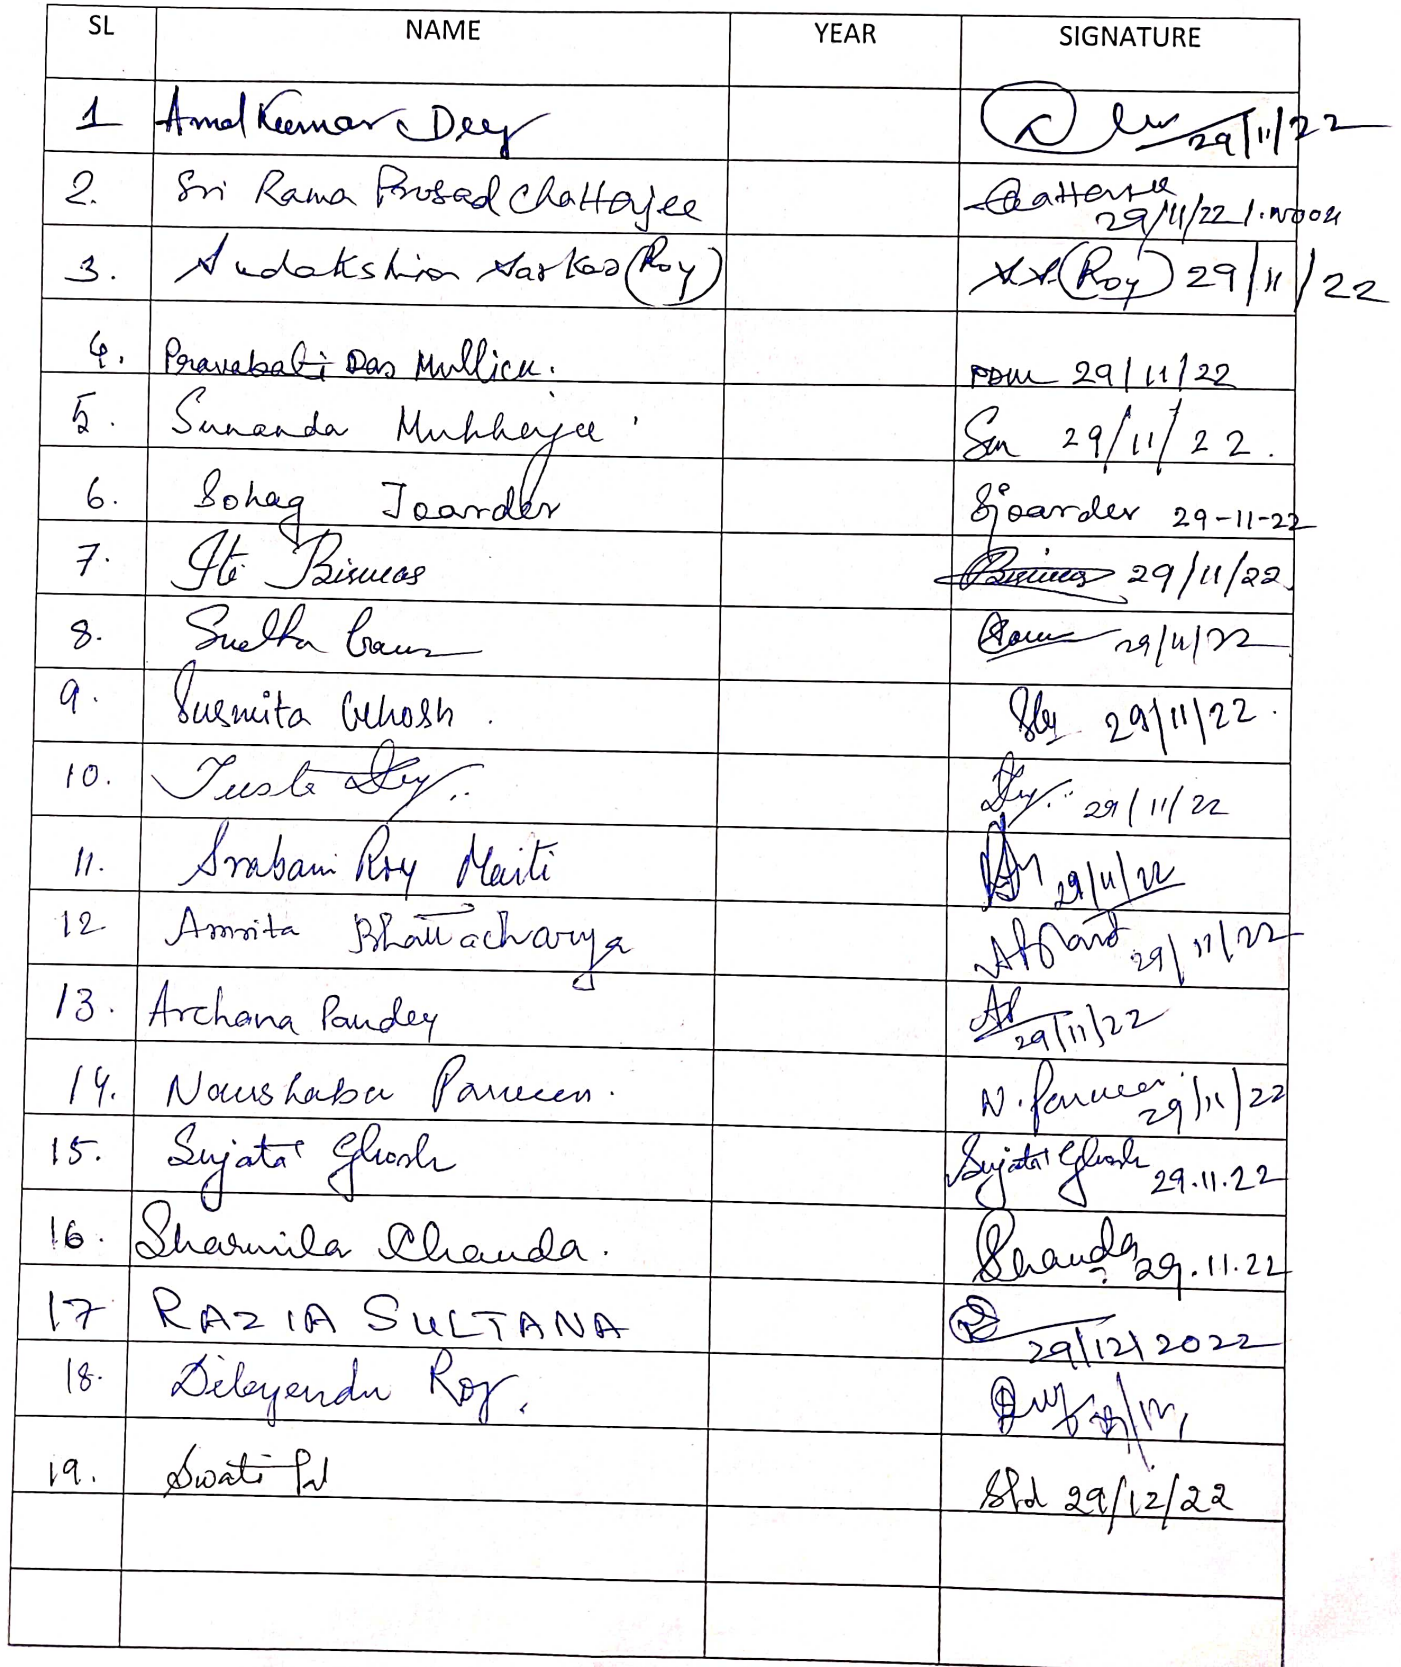 SL NAME YEAR SIGNATURE
1 Amal Kumar Dey 29/11/22
2. Sri Rama Prosad Chatterjee Chatterjee
29/11/22 1.NOON
3. Sudakshina Sarkar (Roy) SS (Roy) 29/11/22
4. Pravabati Das Mullick. PDM 29/11/22
5. Sunanda Mukherjee Sm 29/11/22.
6. Sohag Joarder Sjoarder 29-11-22
7. Iti Biswas Biswas 29/11/22
8. 29/11/22
9. Susmita Ghosh. 29/11/22.
10. Dey.. Dey.. 29/11/22
11. Srabani Roy Maiti 29/11/22
12 Amrita Bhattacharya 29/11/22
13. Archana Pandey AP
29/11/22
14. Naushaba Parveen. N. Parveen 29/11/22
15. Sujata Ghosh Sujata Ghosh 29.11.22
16. Sharmila Chanda. Chanda 29.11.22
17 RAZIA SULTANA 29/12/2022
18. Dibyendu Roy.
19. Swati Pal SPal 29/12/22